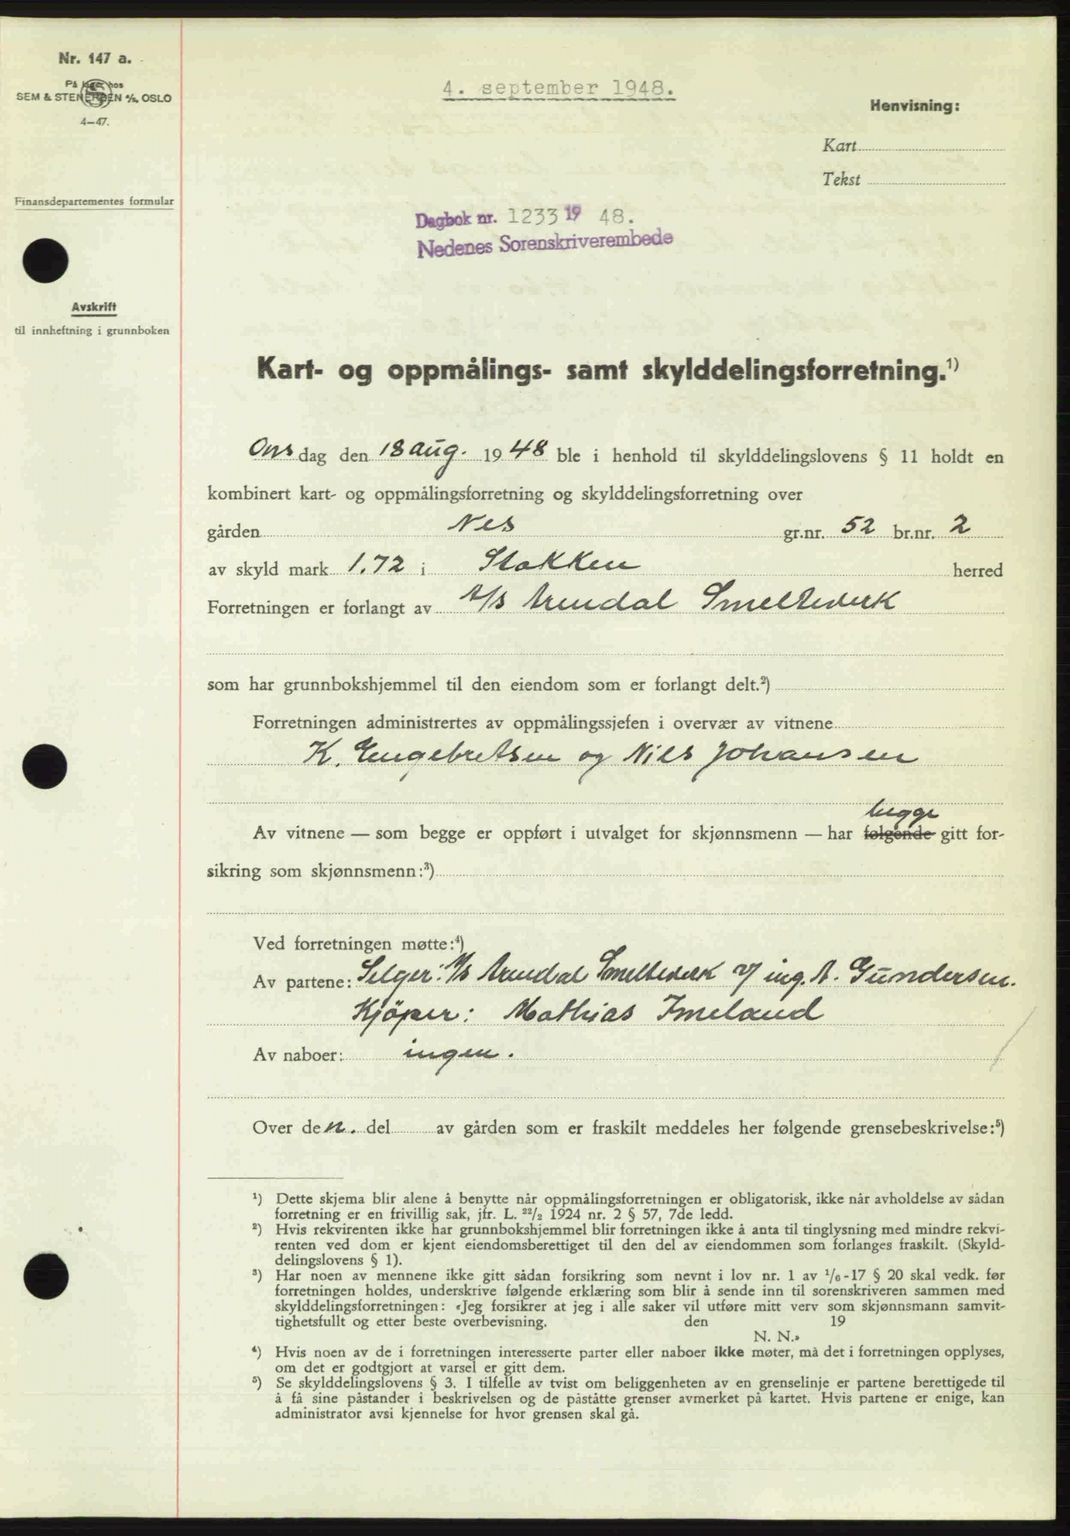 Nr. 147 a.
På lager hos
SEM & STENERSEN A/S, OSLO
4-47.
Finansdepartementes formular
Avskrift
til innheftning i grunnboken
4. september 1948.
Henvisning:
Kart
Tekst
Dagbok nr. 1233 19 48.
Nedenes Sorenskriverembede
Kart- og oppmålings- samt skylddelingsforretning.¹)
Onsdag den 18 aug. 1948 ble i henhold til skylddelingslovens § 11 holdt en
kombinert kart- og oppmålingsforretning og skylddelingsforretning over
gården Nes gr.nr. 52 br.nr. 2
av skyld mark 1.72 i Stokken herred
Forretningen er forlangt av A/S Arendal Smelteverk
som har grunnbokshjemmel til den eiendom som er forlangt delt.²)
Forretningen administrertes av oppmålingssjefen i overvær av vitnene
K. Engebretsen og Niels Johansen
begge
Av vitnene — som begge er oppført i utvalget for skjønnsmenn — har følgende gitt for-
sikring som skjønnsmenn:³)
Ved forretningen møtte:⁴)
Av partene: Selger: A/S Arendal Smelteverk v/ ing. A. Gundersen.
Kjöper: Mathias Imeland
Av naboer: ingen.
Over den. del av gården som er fraskilt meddeles her følgende grensebeskrivelse:⁵)
¹) Dette skjema blir alene å benytte når oppmålingsforretningen er obligatorisk, ikke når avholdelse av sådan
forretning er en frivillig sak, jfr. L. ²²/₂ 1924 nr. 2 § 57, 7de ledd.
²) Hvis rekvirenten ikke har grunnbokshjemmel blir forretningen ikke å anta til tinglysning med mindre rekvi-
renten ved dom er kjent eiendomsberettiget til den del av eiendommen som forlanges fraskilt. (Skyld-
delingslovens § 1).
³) Har noen av mennene ikke gitt sådan forsikring som nevnt i lov nr. 1 av ¹/₆-17 § 20 skal vedk. før
forretningen holdes, underskrive følgende erklæring som blir å sende inn til sorenskriveren sammen med
skylddelingsforretningen: «Jeg forsikrer at jeg i alle saker vil utføre mitt verv som skjønnsmann samvit-
tighetsfullt og etter beste overbevisning. den 19
N. N.»
⁴) Hvis noen av de i forretningen interesserte parter eller naboer ikke møter, må det i forretningen opplyses,
om det er godtgjort at varsel er gitt dem.
⁵) Se skylddelingslovens § 3. I tilfelle av tvist om beliggenheten av en grenselinje er partene berettigede til
å få sine påstander i beskrivelsen og de påståtte grenser avmerket på kartet. Hvis partene er enige, kan
administrator avsi kjennelse for hvor grensen skal gå.